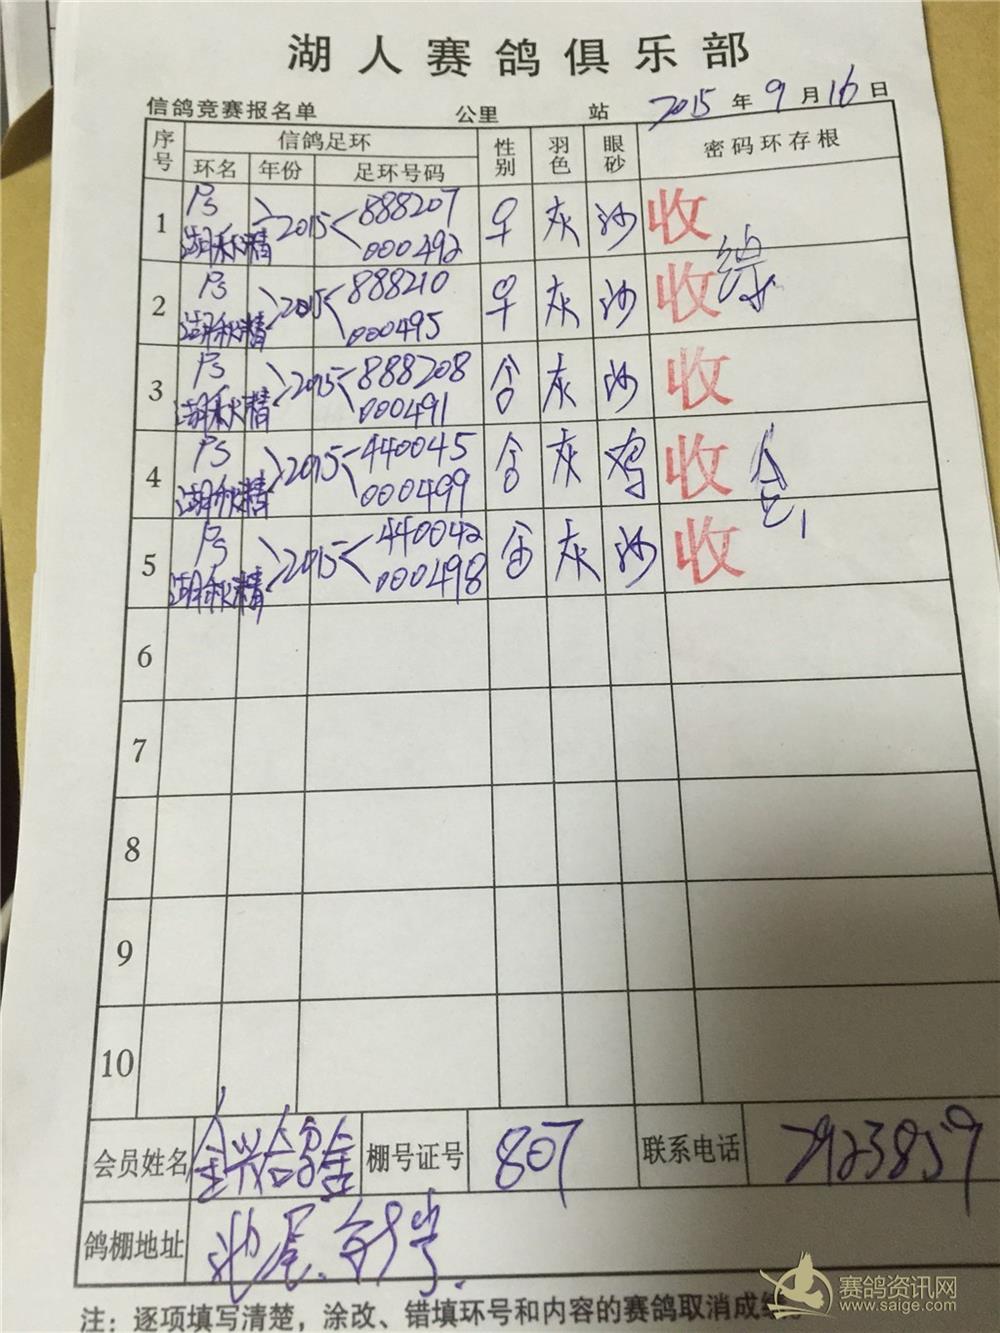 湖人赛鸽俱乐部
信鸽竞赛报名单 公里 站 2015 年 9 月 16 日
序号 信鸽足环 性别 羽色 眼砂 密码环存根
环名 年份 足环号码
1 2015 888207 灰 沙 收
湖秋精 000492
2 2015 888210 灰 沙 收
湖秋精 000495
3 2015 888208 灰 沙 收
湖秋精 000491
4 2015 440045 灰 鸡 收
湖秋精 000499
5 2015 440042 灰 沙 收
湖秋精 000498
6
7
8
9
10
会员姓名 棚号证号 807 联系电话 7923859
鸽棚地址
注：逐项填写清楚，涂改、错填环号和内容的赛鸽取消成
赛鸽资讯网
www.saige.com